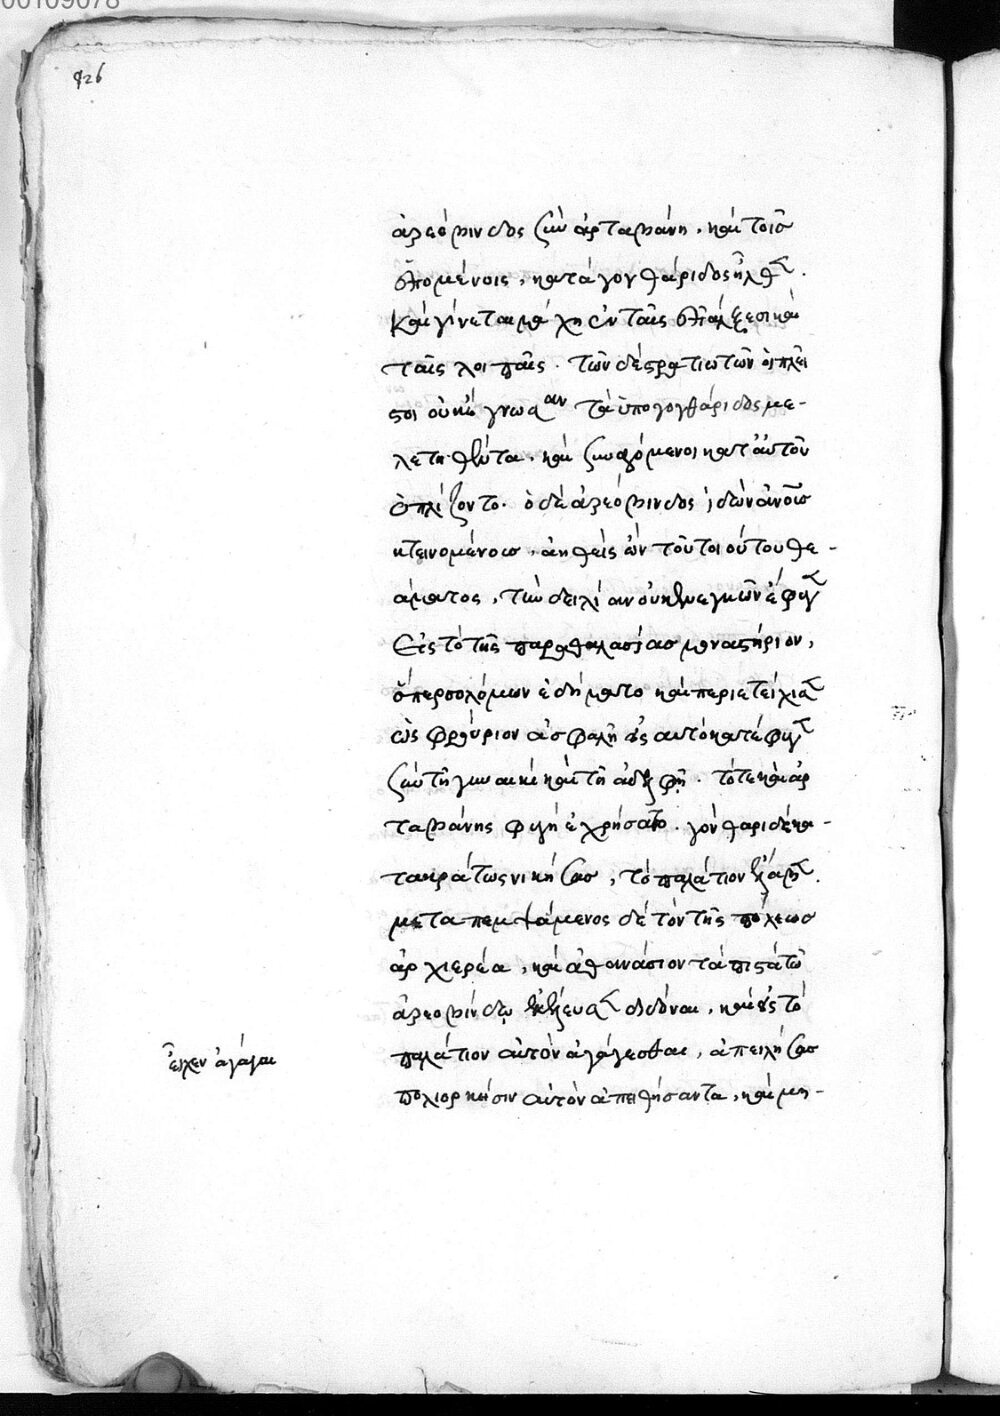 00109078
926
ἀρεόβινδος ξὺν ἀρταβάνῃ, καὶ τοῖσ
ἑπομένοις, κατὰ γονθάριδος ἦλθε.
καὶ γίνεται μάχη ἐν ταῖς ἐπάλξεσι καὶ
ταῖς λοιπαῖς. τῶν δὲ στρατιωτῶν οἱ πλεῖ
στοι οὐκ ἔγνωσαν τὰ ὑπὸ γονθάριδος με-
λετηθέντα, καὶ ξυναγόμενοι κατ' αὐτὸν
ὁπλίζοντο. ὁ δὲ ἀρεόβινδος ἰδὼν ἀν̅ο̅υ̅σ
κτεινομένουσ, ἀηθεὶς ὢν τοῦ τοιούτου θε-
άματος, τὴν δειλίαν οὐκ ἐνεγκὼν ἔφυγε
Εἰς τὸ τῆς παραθαλασίασ μοναστήριον,
ὅπερ σολόμων ἐδήματο καὶ περιετείχισε
ὡς φρούριον ἀσφαλῆ εἰς αὐτὸ κατέφυγε
ξὺν τῇ γυναικὶ καὶ τῇ ἀδελφῇ. τότε καὶ ἀρ
ταβάνης φυγῇ ἐχρήσατο. γονθάρις δὲ κα-
τακράτως νικήσασ, τὸ παλάτιον εἶλε.
μεταπεμψάμενος δὲ τὸν τῆς πόλεωσ
ἀρχιερέα, καὶ ἀθανάσιον τὰ πιστὰ τῶ
ἀρεοβίνδῳ ἐκέλευσε διδόναι, καὶ εἰς τὸ
παλάτιον αὐτὸν ἀγάγεσθαι, ἀπειλήσασ
πολιορκήσιν αὐτὸν ἀπειθήσαντα, καὶ μη-
εἶχεν ἀγάγαι